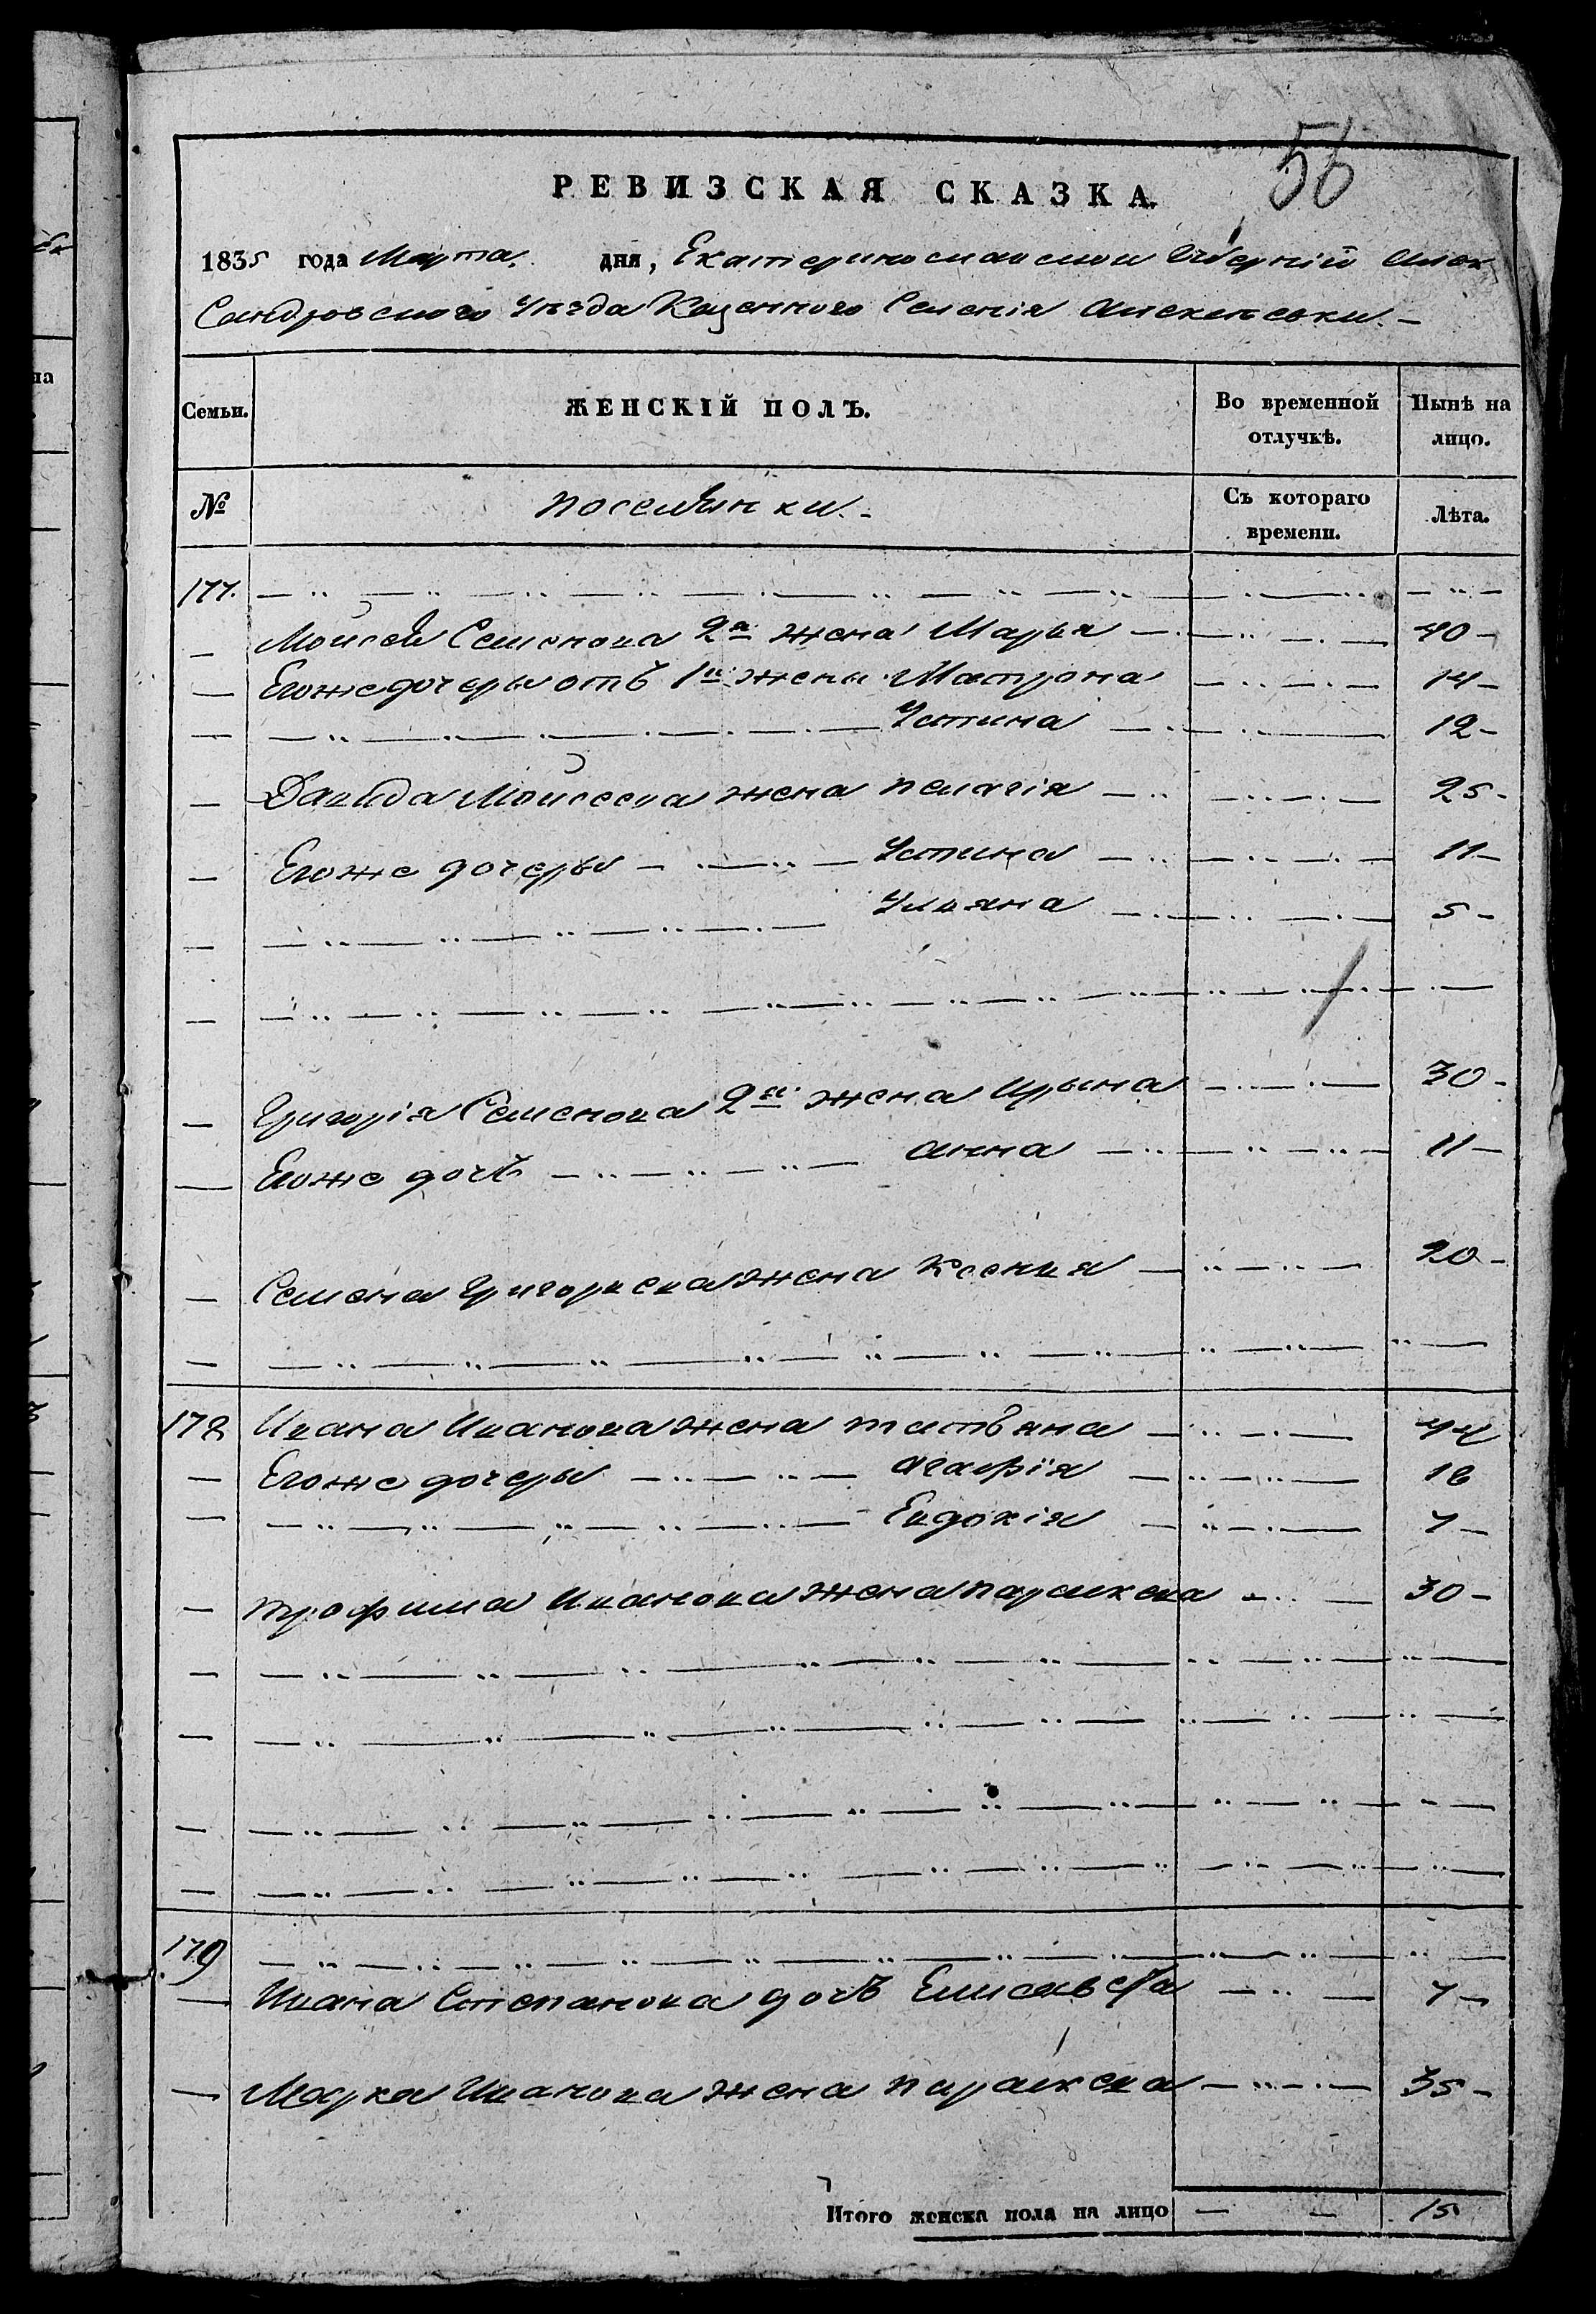 56
РЕВИЗСКАЯ СКАЗКА.
1835 года Марта дня, Екатеринославской Губерніи Алек
Сандровского Уезда Казенного Селенія Алексеевки. –
Семьи. ЖЕНСКІЙ ПОЛЪ. Во временной отлучкѣ. Нынѣ на лицо.
№ поселянки. – Съ котораго времени. Лѣта.
177.
Мойсея Семенова 2я жена Марья 40
Егоже дочеры отъ 1й жены Матрона 14
Устина 12
Давида Мойсеева жена пелагія 25
Егоже дочеры Устина 11
Ульяна 5
Григорія Семенова 2я жена Ирына 30
Егоже дочь анна 11
Семена Григорьева жена Ксенья 20
178 Ивана Иванова жена татьяна 44
Егоже дочеры агафія 16
Евдокія 7
трофима Иванова жена параскева 30
179
Ивана Степанова дочь Елисавета 7
Марка Иванова жена параскева 35
Итого женска пола на лицо 15